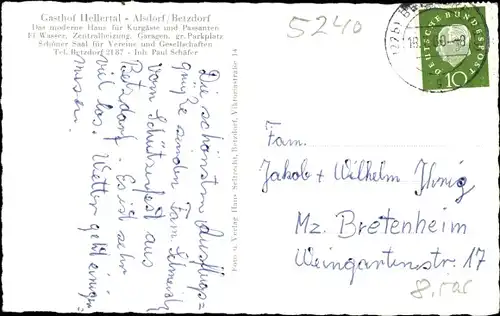 Gasthof Hellertal - Alsdorf/Betzdorf
Das moderne Haus für Kurgäste und Passanten
Fl. Wasser, Zentralheizung, Garagen, gr. Parkplatz
Schöner Saal für Vereine und Gesellschaften
Tel. Betzdorf 2187 - Inh. Paul Schäfer
5240
DEUTSCHE BUNDESPOST
10
Die schönsten Ausflugs=
grüße senden Fam.
vom Schützenfest aus
Betzdorf. Es ist sehr
viel los. Wetter geht einiger-
massen.
Foto u. Verlag Hans Betzdorf, Viktoriastraße 14
Fam.
Jakob + Wilhelm
Mz. Bretenheim
Weingartenstr. 17